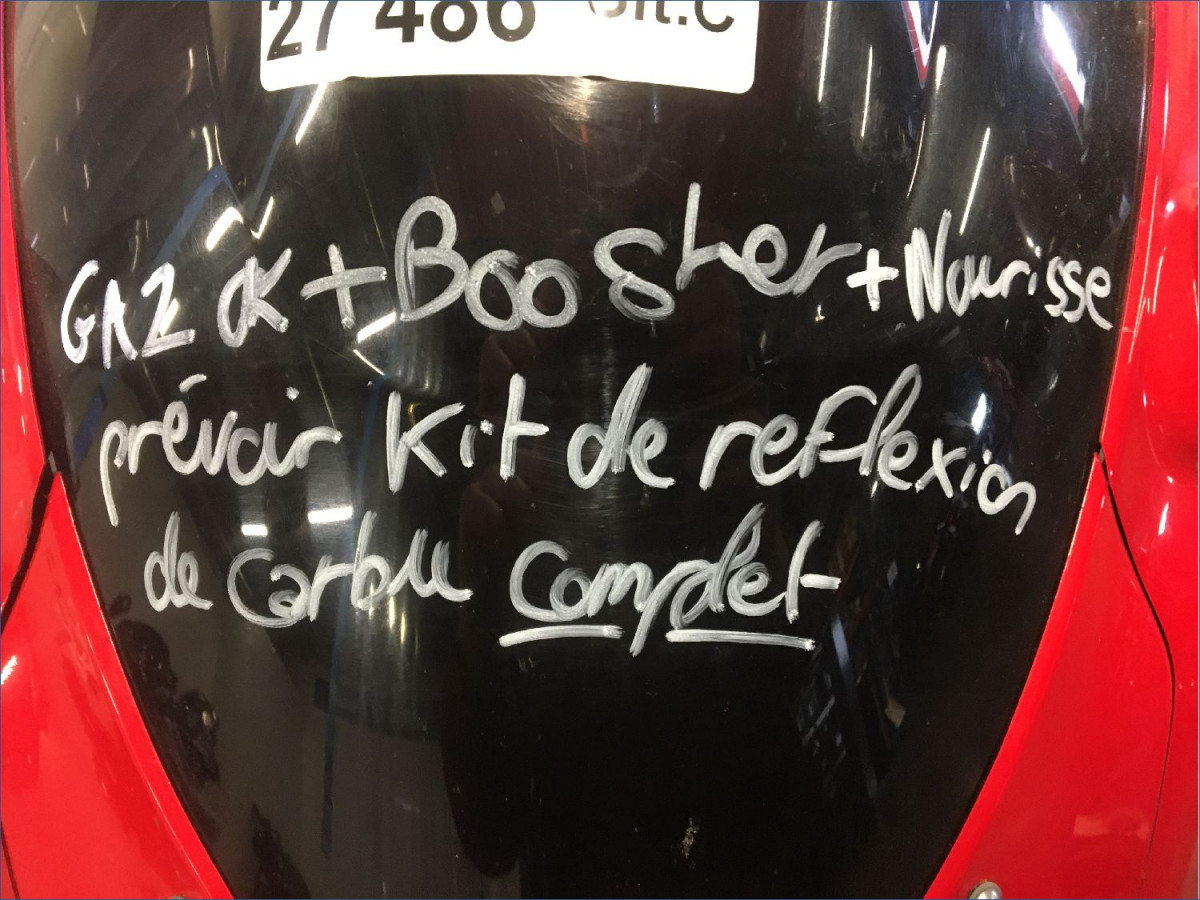 27 486
GAZ OK + Booster + Nourisse
prévoir Kit de reflexion
de Carbu Complet